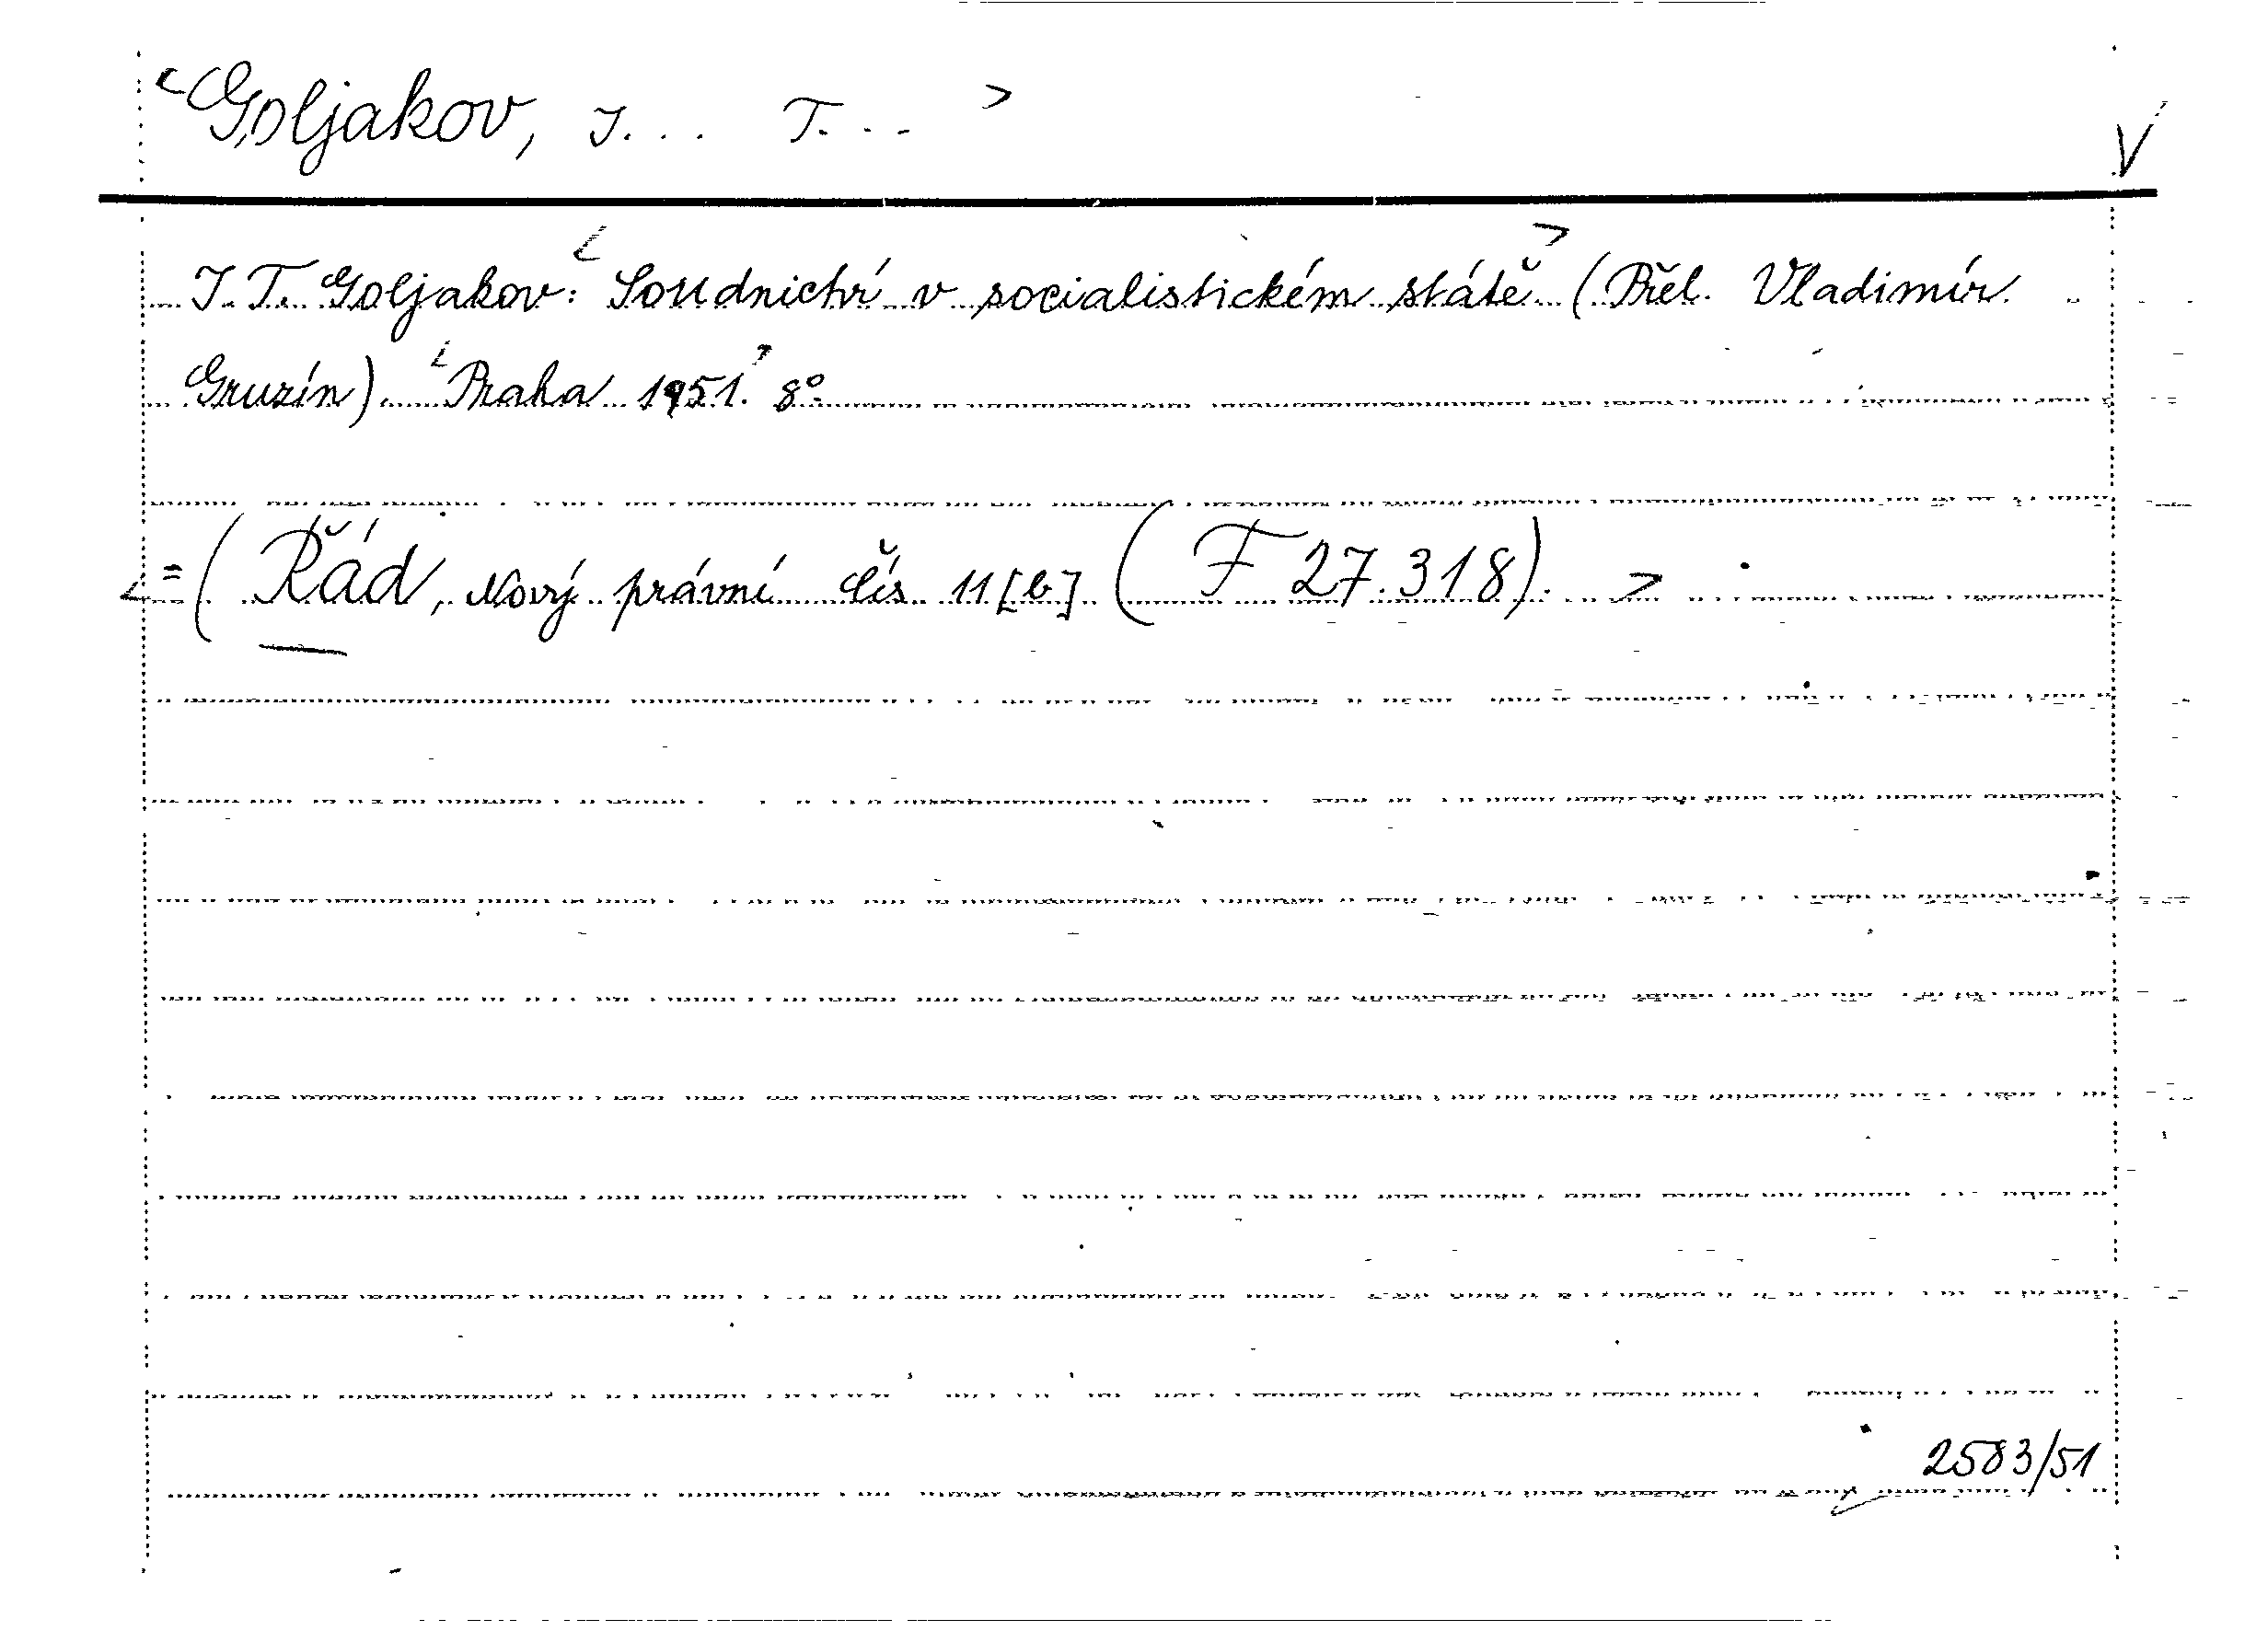 <Goljakov, J... T...>
V
J. T. Goljakov: <Soudnictví v socialistickém státě> (Přel. Vladimír
Gruzín). <Praha 1951.> 8°.
<= (Řád, Nový právní čís 11 [b] (F 27.318). >
2583/51